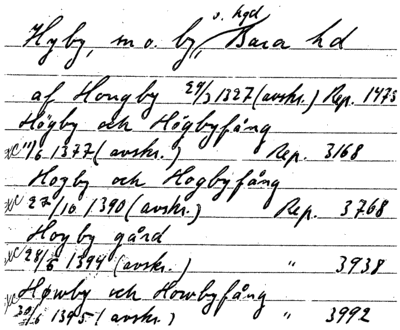 o. hgd
Hyby, m o. by, Bara hd
af Hongby 24/3 1327 (avskr.) Rep. 1473
Högby och Högbyfång
xc 11/6 1377 (avskr.) Rep. 3168
Hogby och Hogbyfång
xc 27/10 1390 (avskr.) Rep. 3768
Hogby gård
xc 28/6 1394 (avskr.) " 3938
Høwby och Howbyfång
xc 30/6 1395 (avskr.) " 3992